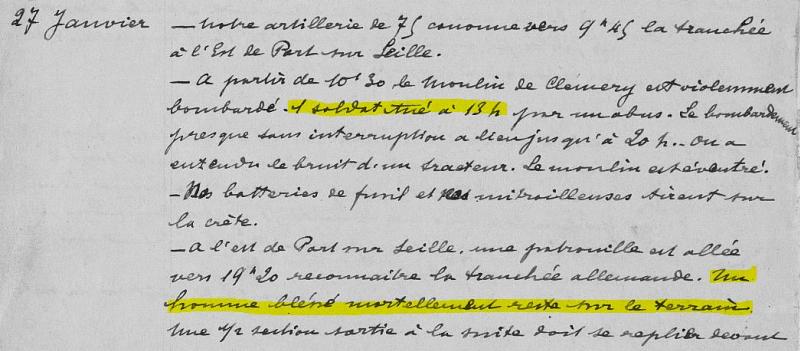 27 Janvier — Notre artillerie de 75 canonne vers 9h45 la tranchée
à l'Est de Port sur Seille.
— A partir de 10h30 le Moulin de Clémery est violemment
bombardé. 1 soldat tué à 13h par un obus. Le bombardement
presque sans interruption a lieu jusqu'à 20h. - On a
entendu le bruit d'un tracteur. Le moulin est éventré.
— Nos batteries de fusil et nos mitrailleuses tirent sur
la crête.
— A l'est de Port sur Seille, une patrouille est allée
vers 19h20 reconnaître la tranchée allemande. Un
homme blessé mortellement reste sur le terrain.
Une 1/2 section sortie à la suite doit se replier devant